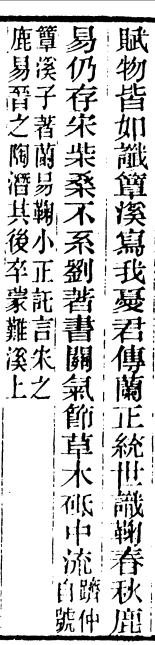 賦物皆如讖簟溪寫我憂君傳蘭正統世識鞠春秋鹿
易仍存宋柴桑不系劉著書關氣節草木砥中流
躋仲
自號
簟溪子著蘭易鞠小正託言宋之
鹿易晉之陶潛其後卒蒙難溪上